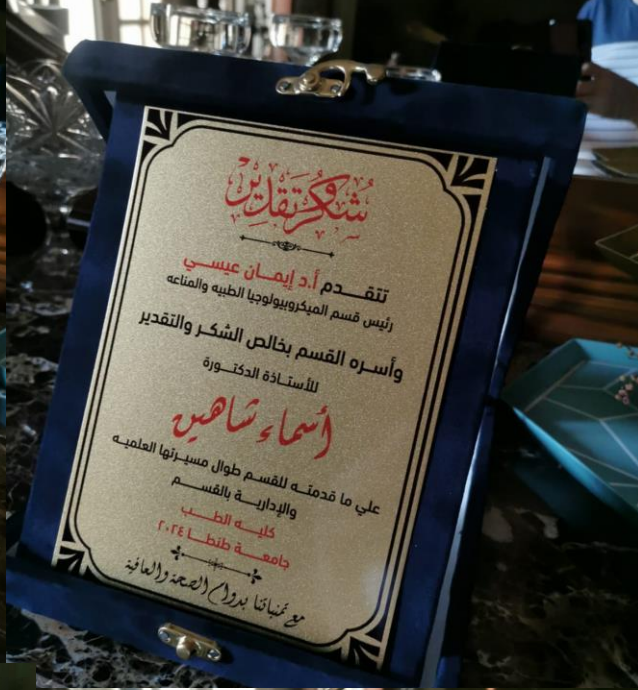 شكر وتقدير
تتقـــدم أ.د إيمـان عيسـي
رئيس قسم الميكروبيولوجيا الطبيه والمناعه
وأسـره القسم بخالص الشكـر والتقدير
للأستـاذة الدكتـــورة
أسماء شاهين
علي ما قدمتـه للقسـم طوال مسيـرتها العلميـه
والإداريـة بالقســـم
كليـــه الطـــب
جامعـــة طنطـــا ٢٠٢٤
مع تمنياتنا بدوام الصحة والعافية